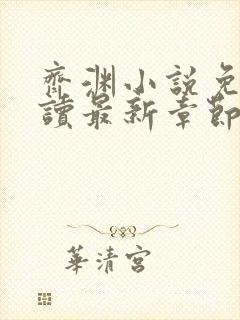 齊淵小說免
讀最新章節
華清宮